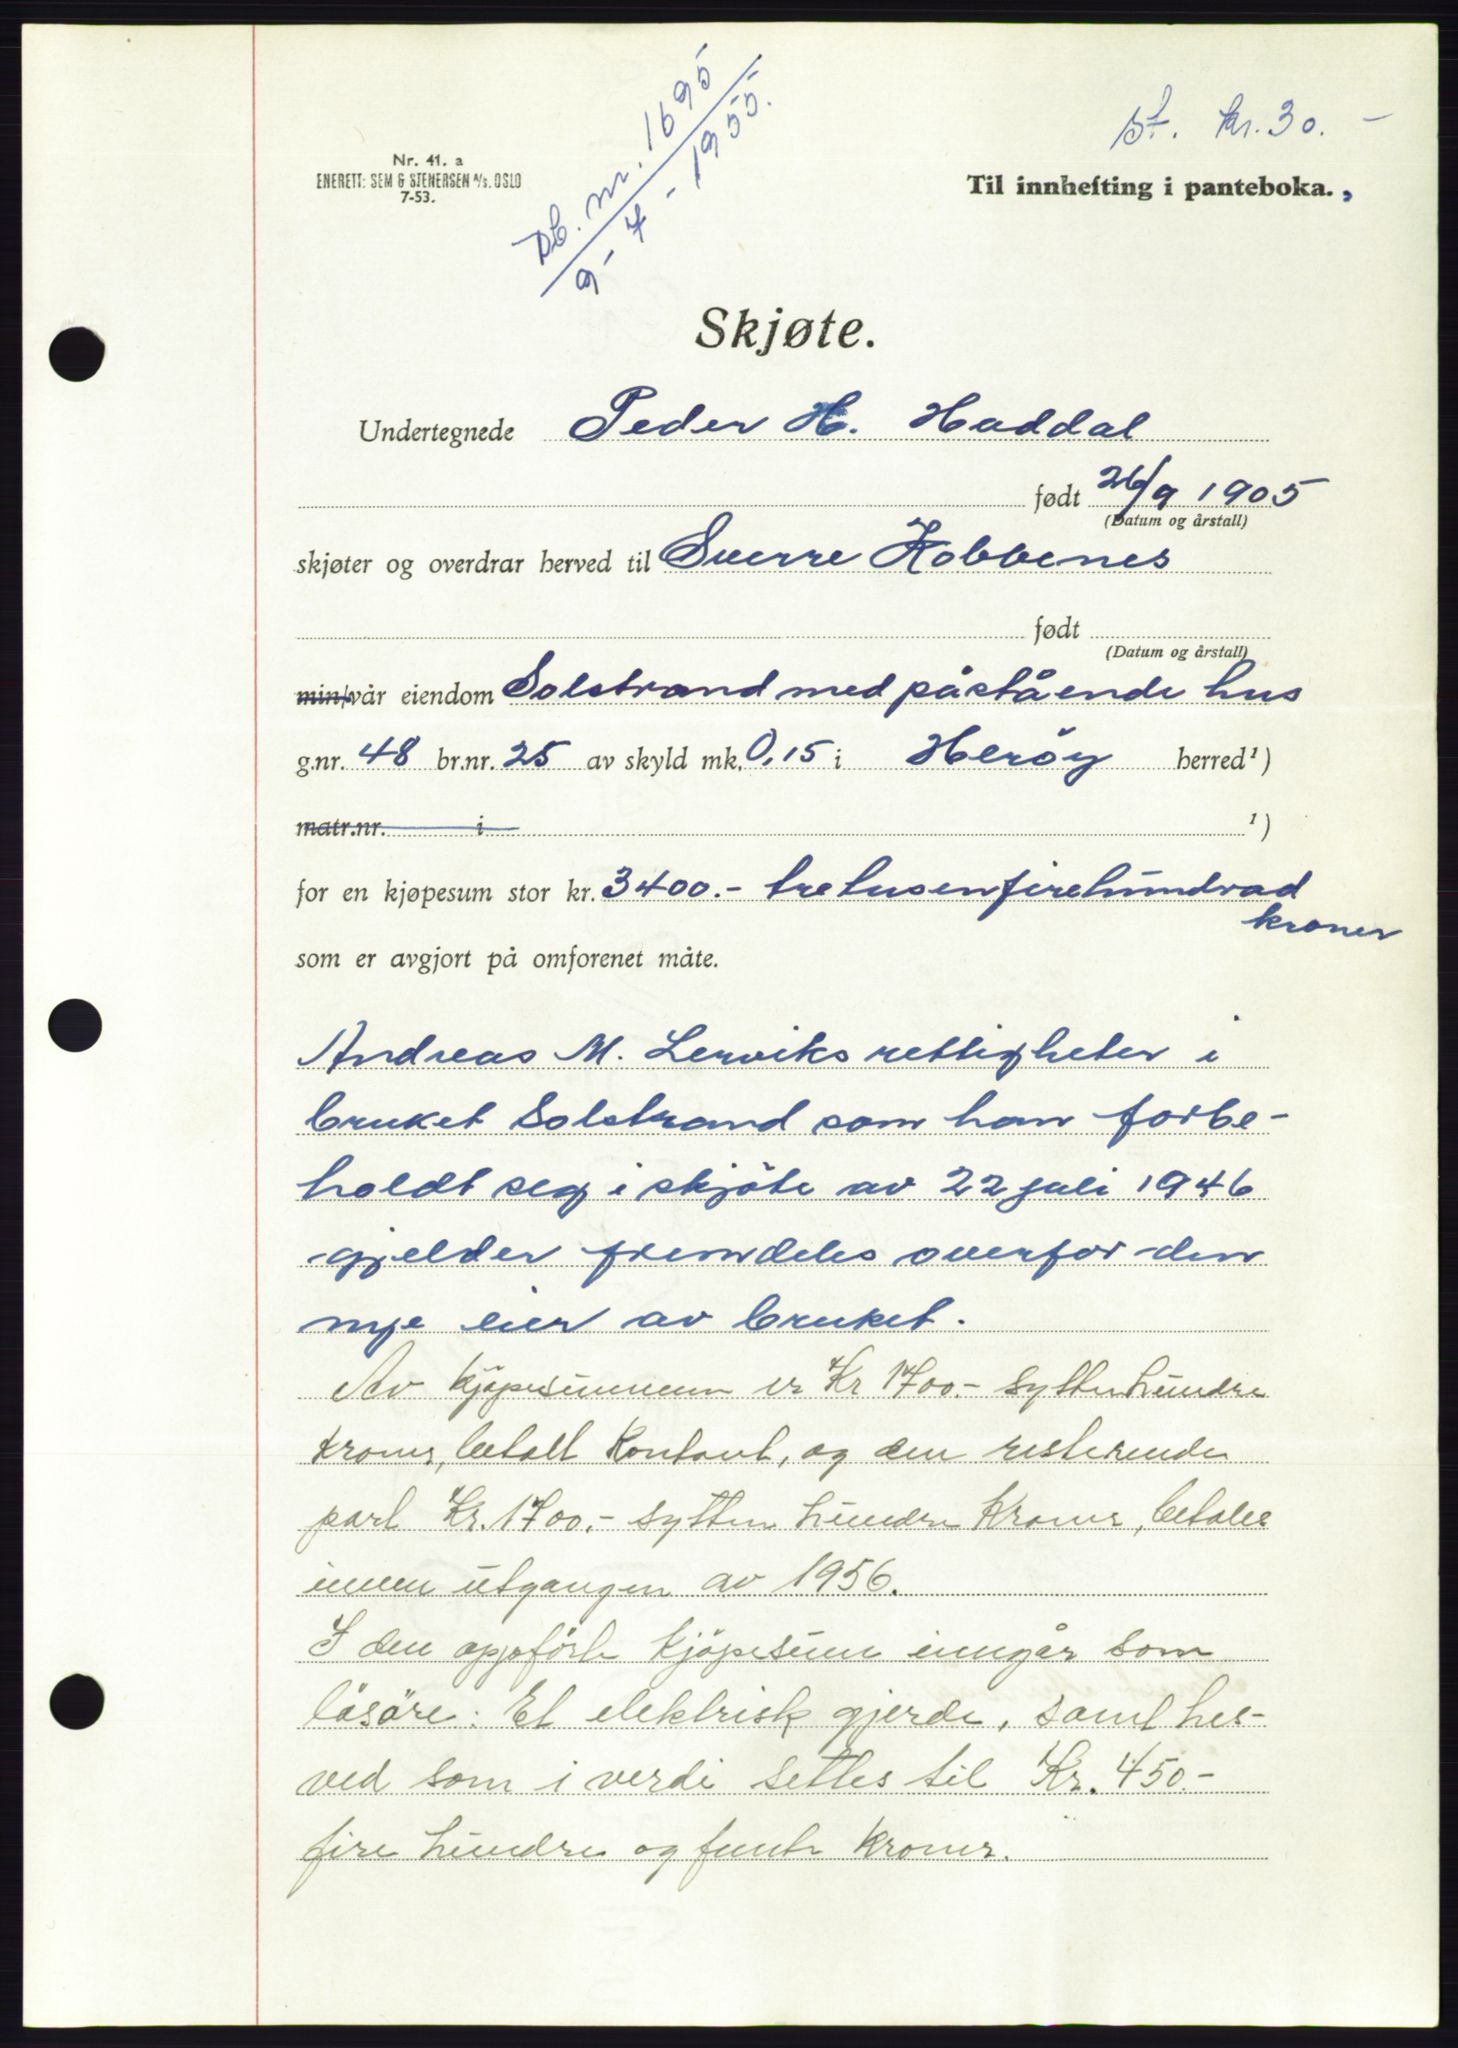 Db. nr. 1695
9 - 7 - 1955.
st. kr. 30. -
Nr. 41. a
ENERETT: SEM & STENERSEN A/S. OSLO
7-53.
Til innhefting i panteboka.
Skjøte.
Undertegnede Peder H. Haddal
født 26/9 1905
(Datum og årstall)
skjøter og overdrar herved til Sverre Kobbenes
født
(Datum og årstall)
min/vår eiendom Solstrand med påstående hus
g.nr. 48 br.nr. 25 av skyld mk. 0,15 i Herøy herred ¹)
matr.nr. i ¹)
for en kjøpesum stor kr. 3400.- tretusenfirehundrad
kroner
som er avgjort på omforenet måte.
Andreas M. Lerviks rettigheter i
bruket Solstrand som han forbe-
holdt seg i skjöte av 22 juli 1946
gjelder fremdeles overfor den
nye eier av bruket.
Av kjöpesummen er Kr 1700.- sytten hundre
kroner, betalt kontant, og den resterende
part Kr. 1700.- sytten hundre kroner, betales
innen utgangen av 1956.
I den oppförte kjöpesum inngår som
lösöre: Et elektrisk gjerde, samt hes-
ved som i verdi settes til Kr. 450.-
fire hundre og femti kroner.